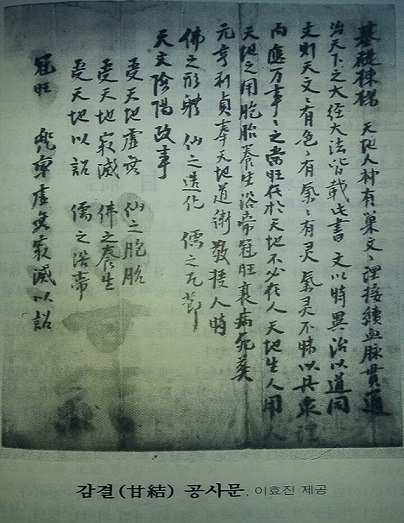 基礎棟樑 天地人神有巢文〻理接續血脉貫通
治天下之大经大法皆載此書 文以時異治以道同
文則天文〻有色〻有氣〻有灵 氣灵不昧以具衆理
而應万事〻之當旺在於天地不必在人 天地生人用人
天地之用胞胎養生浴帶冠旺衰病死葬
元亨利貞奉天地道術敎授人時
佛之形軆 仙之造化 儒之凡節
天文陰陽政事
受天地虛無 仙之胞胎
受天地寂滅 佛之養生
受天地以詔 儒之浴帶
冠旺 兜率虛無寂滅以詔
감결(甘結) 공사문. 이효진 제공